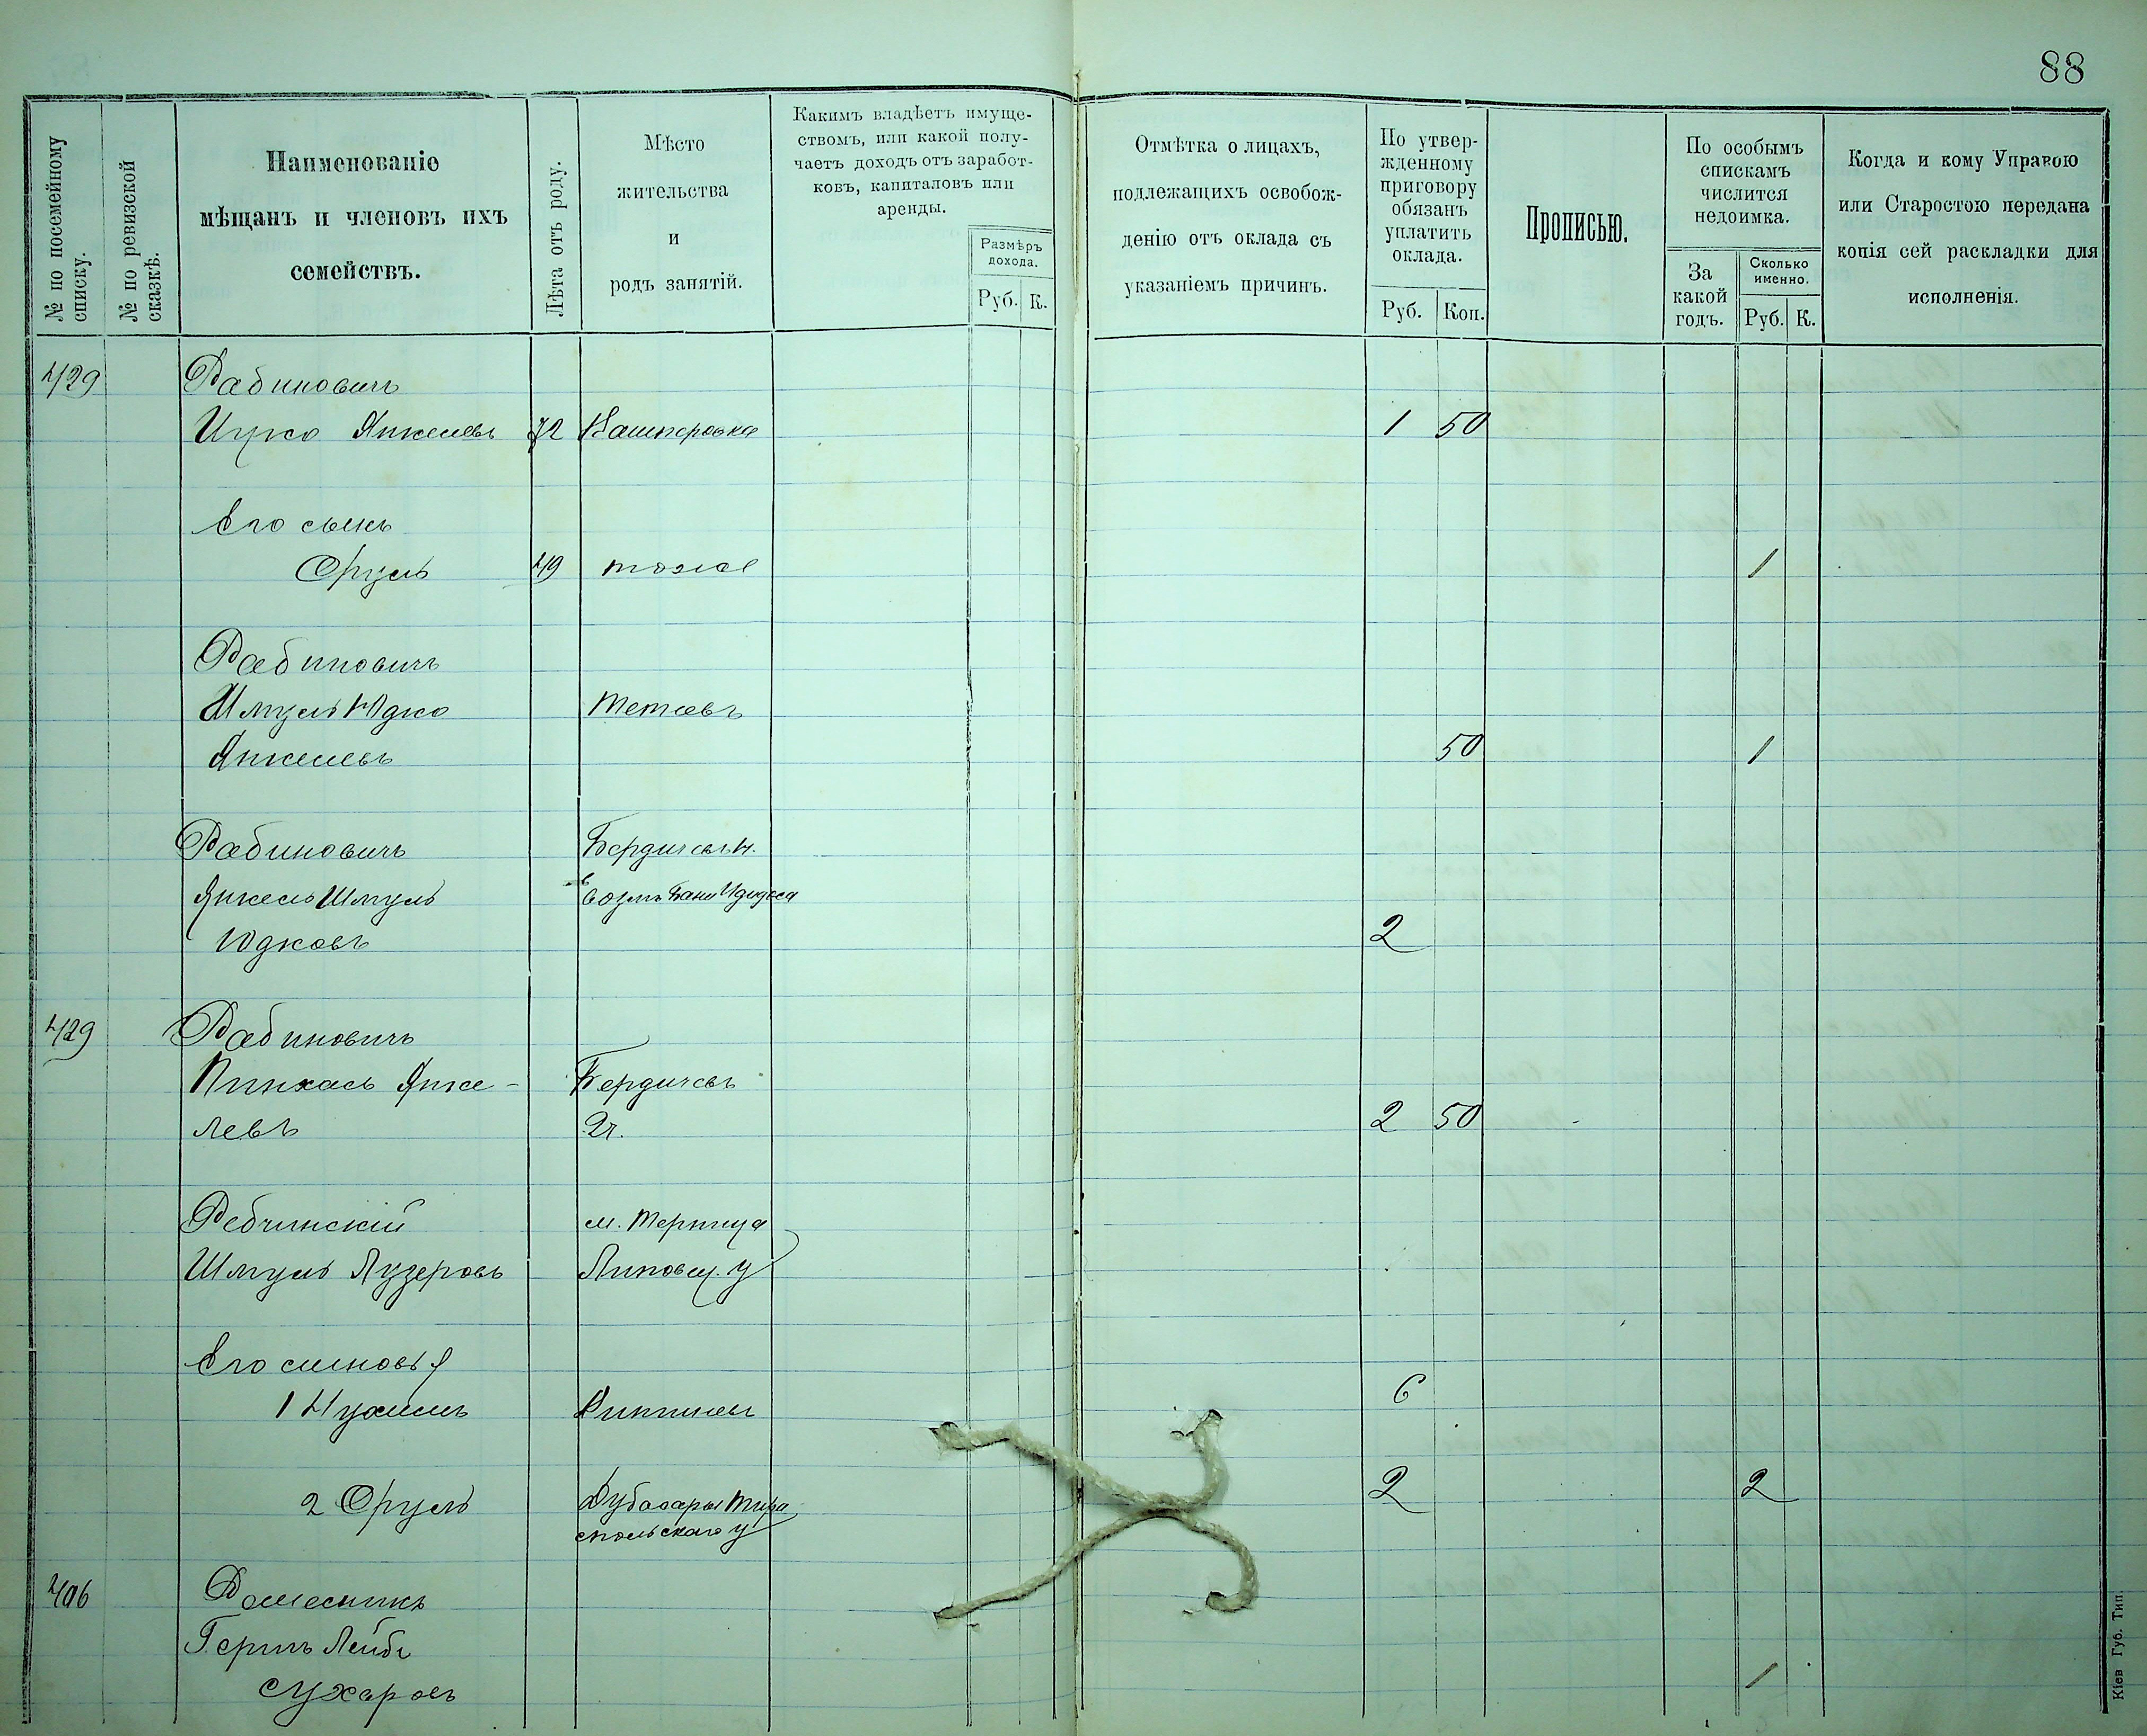 88
№ по посемейному списку.
№ по ревизской сказкѣ.
Наименованіе
мѣщанъ и членовъ ихъ
семействъ.
Лѣта отъ роду.
Мѣсто
жительства
и
родъ занятій.
Какимъ владѣетъ имуще-
ствомъ, или какой полу-
чаетъ доходъ отъ заработ-
ковъ, капиталовъ или
аренды.
Размѣръ
дохода.
Руб. К.
Отмѣтка о лицахъ,
подлежащихъ освобож-
денію отъ оклада съ
указаніемъ причинъ.
По утвер-
жденному
приговору
обязанъ
уплатить
оклада.
Руб. Коп.
Прописью.
По особымъ
спискамъ
числится
недоимка.
За
какой
годъ.
Сколько
именно.
Руб. К.
Когда и кому Управою
или Старостою передана
копія сей раскладки для
исполненія.
429 Рабиновичъ
Ицко Янкелевъ 72 Кашперовка 1 50
Его сынъ
Сруль 49 тоже 1
Рабиновичъ
Шмуль Юдко Тетіевъ
Янкелевъ 50 1
Рабиновичъ Бердичевъ
Янкель Шмуль возлѣ Бани
Юдковъ 2
429 Рабиновичъ
Пинхасъ Янке- Бердичевъ
левъ 2ч. 2 50
Ребчинскій м. Терлица
Шмуль Лузеровъ Липовец. у
Его сыновья
1 Нухимъ 6
2 Сруль Дубосары Тира
спольскаго у 2 2
406
Гершъ Лейбъ
Сухаровъ 1
Кіев Губ. Тип.